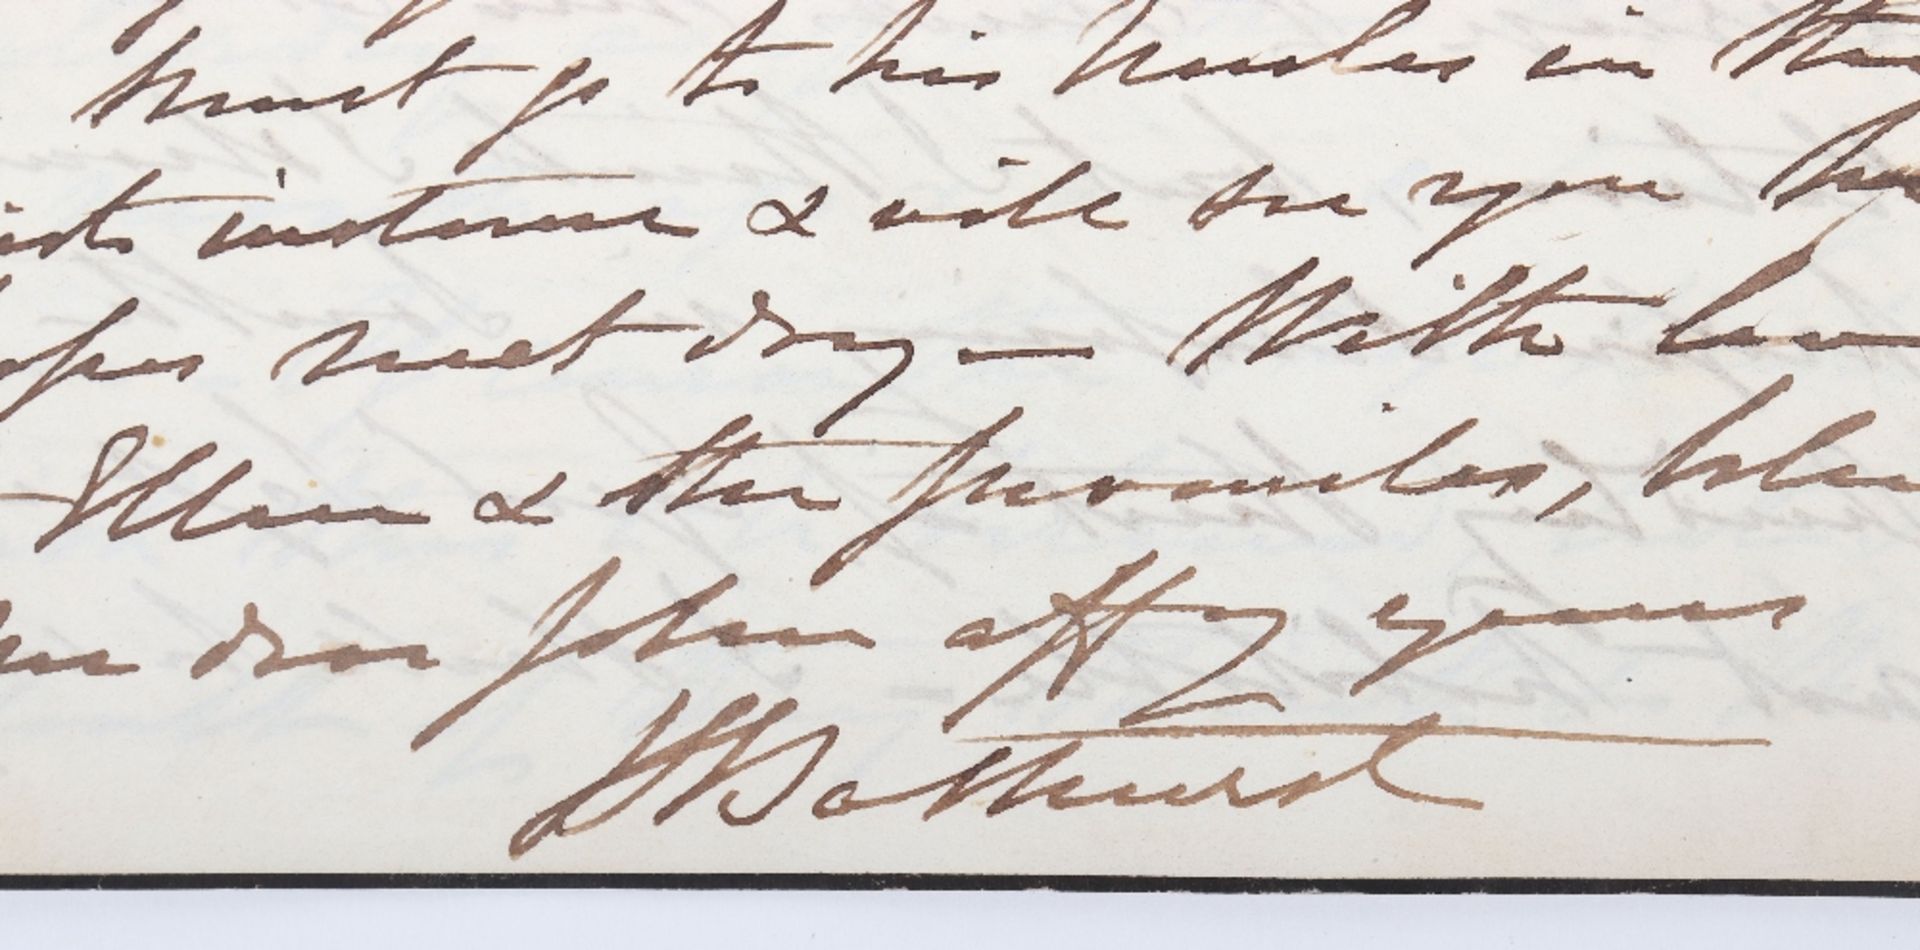 must go to his Uncles in the
instance & will see you
next day — With love
Ellen & the juveniles,
me dear John affy yours
Bathurst